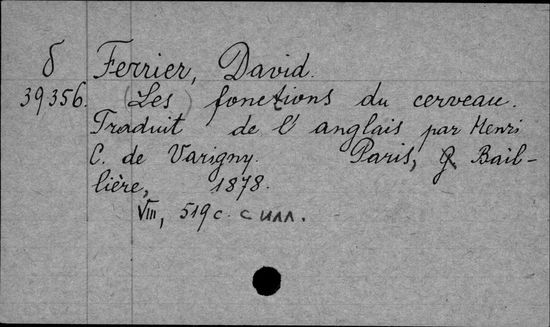 δ Ferrier, David.
39356. (Les) fonctions du cerveau.
Traduit de l'anglais par Henri
C. de Varigny. Paris, G. Bail-
lière, 1878.
VIII, 519 с. с илл.